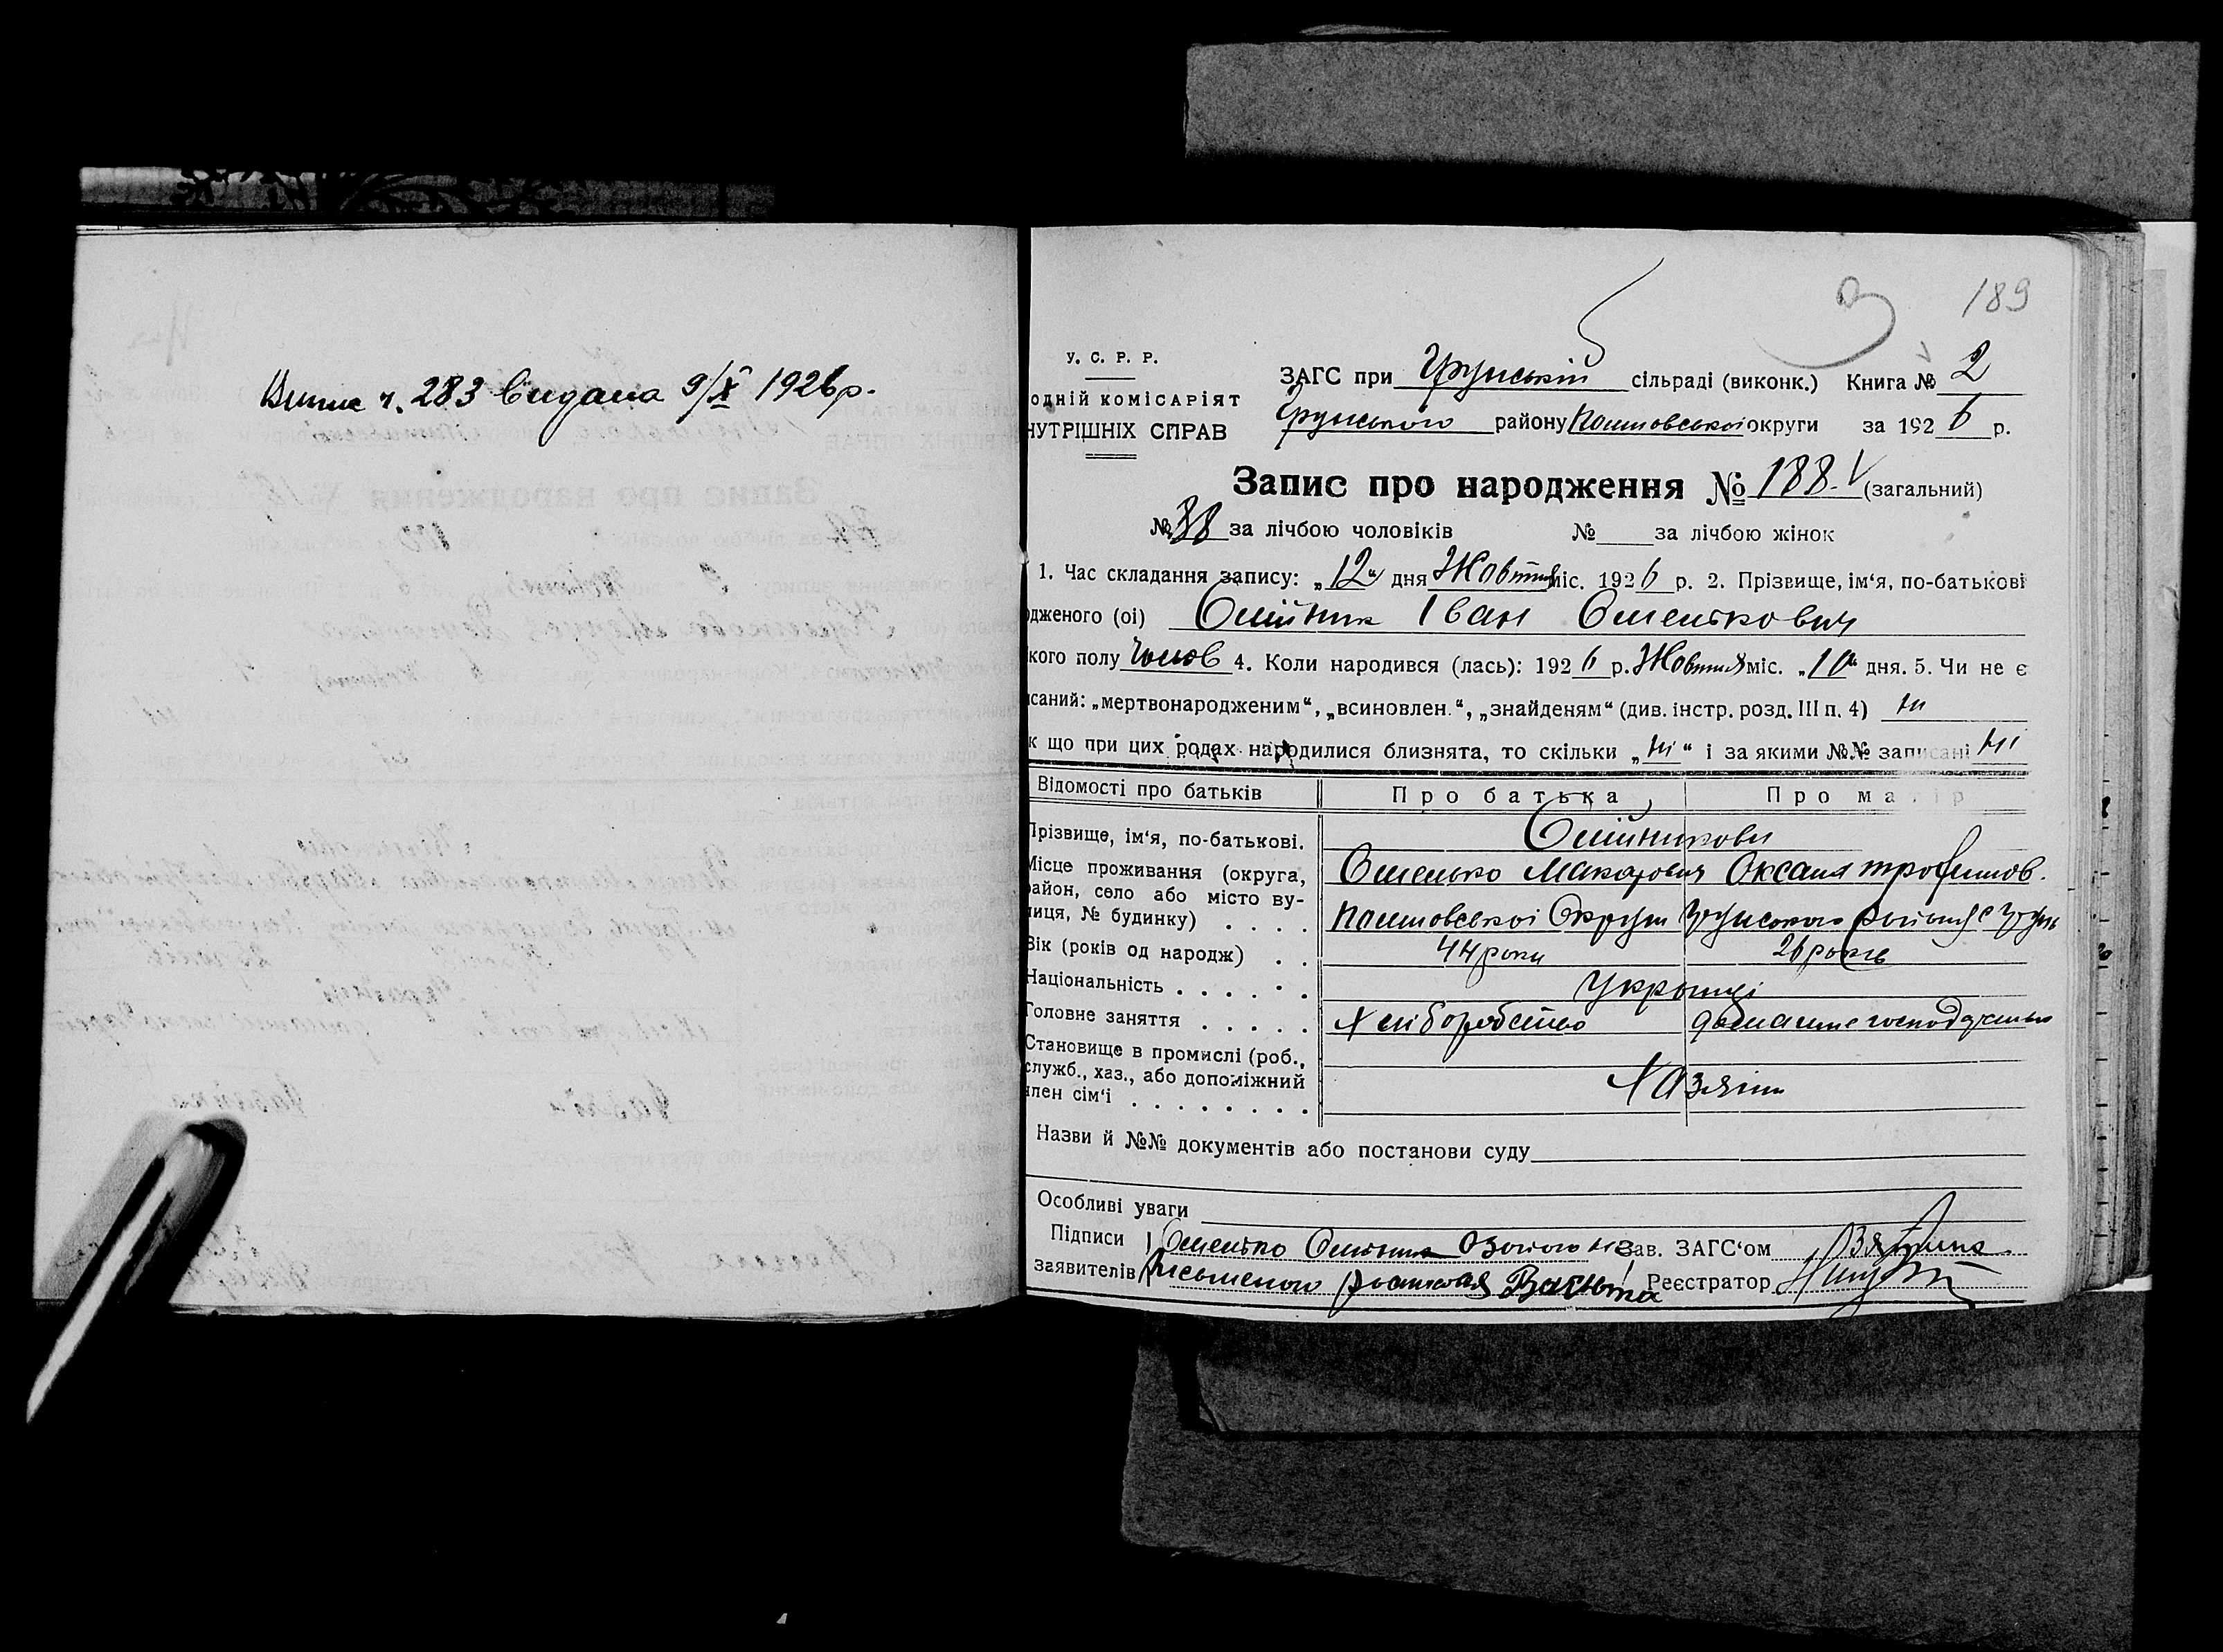 Випис ч. 283 видана 9/X 1926 р.
189
У. С. Р. Р.
ЗАГС при Грунській сільраді (виконк.) Книга № 2
одній комісаріят
Грунського району Полтовської округи за 1926 р.
нутрішніх справ
Запис про народження № 188. (загальний)
№ 88 за лічбою чоловіків № за лічбою жінок
1. Час складання запису: „12“ дня Жовтня міс. 1926 р. 2. Прізвище, ім‘я, по-батькові
дженого (ої) Олійник Іван Омелькович
кого полу Чолов 4. Коли народився (лась): 1926 р. Жовтня міс. „10“ дня. 5. Чи не є
саний: „мертвонародженим“, „всиновлен.“, „знайденям“ (див. інстр. розд. III п. 4) ні
к що при цих родах народилися близнята, то скільки „ні“ і за якими №№ записані ні
Відомості про батьків Про батька Про матір
Прізвище, ім‘я, по-батькові. Олійникови
Місце проживання (округа, Омелько Макарович Оксана Трофимов.
район, село або місто ву-
лиця, № будинку) . . . . Полтовської Округи Грунського району с Грунь
Вік (років од народж) . . 44 роки 26 років
Національність . . . . . . Українці
Головне заняття . . . . . Хліборобство домашнє господарство
Становище в промислі (роб.,
служб., хаз., або допоміжний Хазяіни
член сім‘ї . . . . . . . .
Назви й №№ документів або постанови суду
Особливі уваги
Підписи Омелько Олійник Зав. ЗАГС‘ом
заявителів Реєстратор